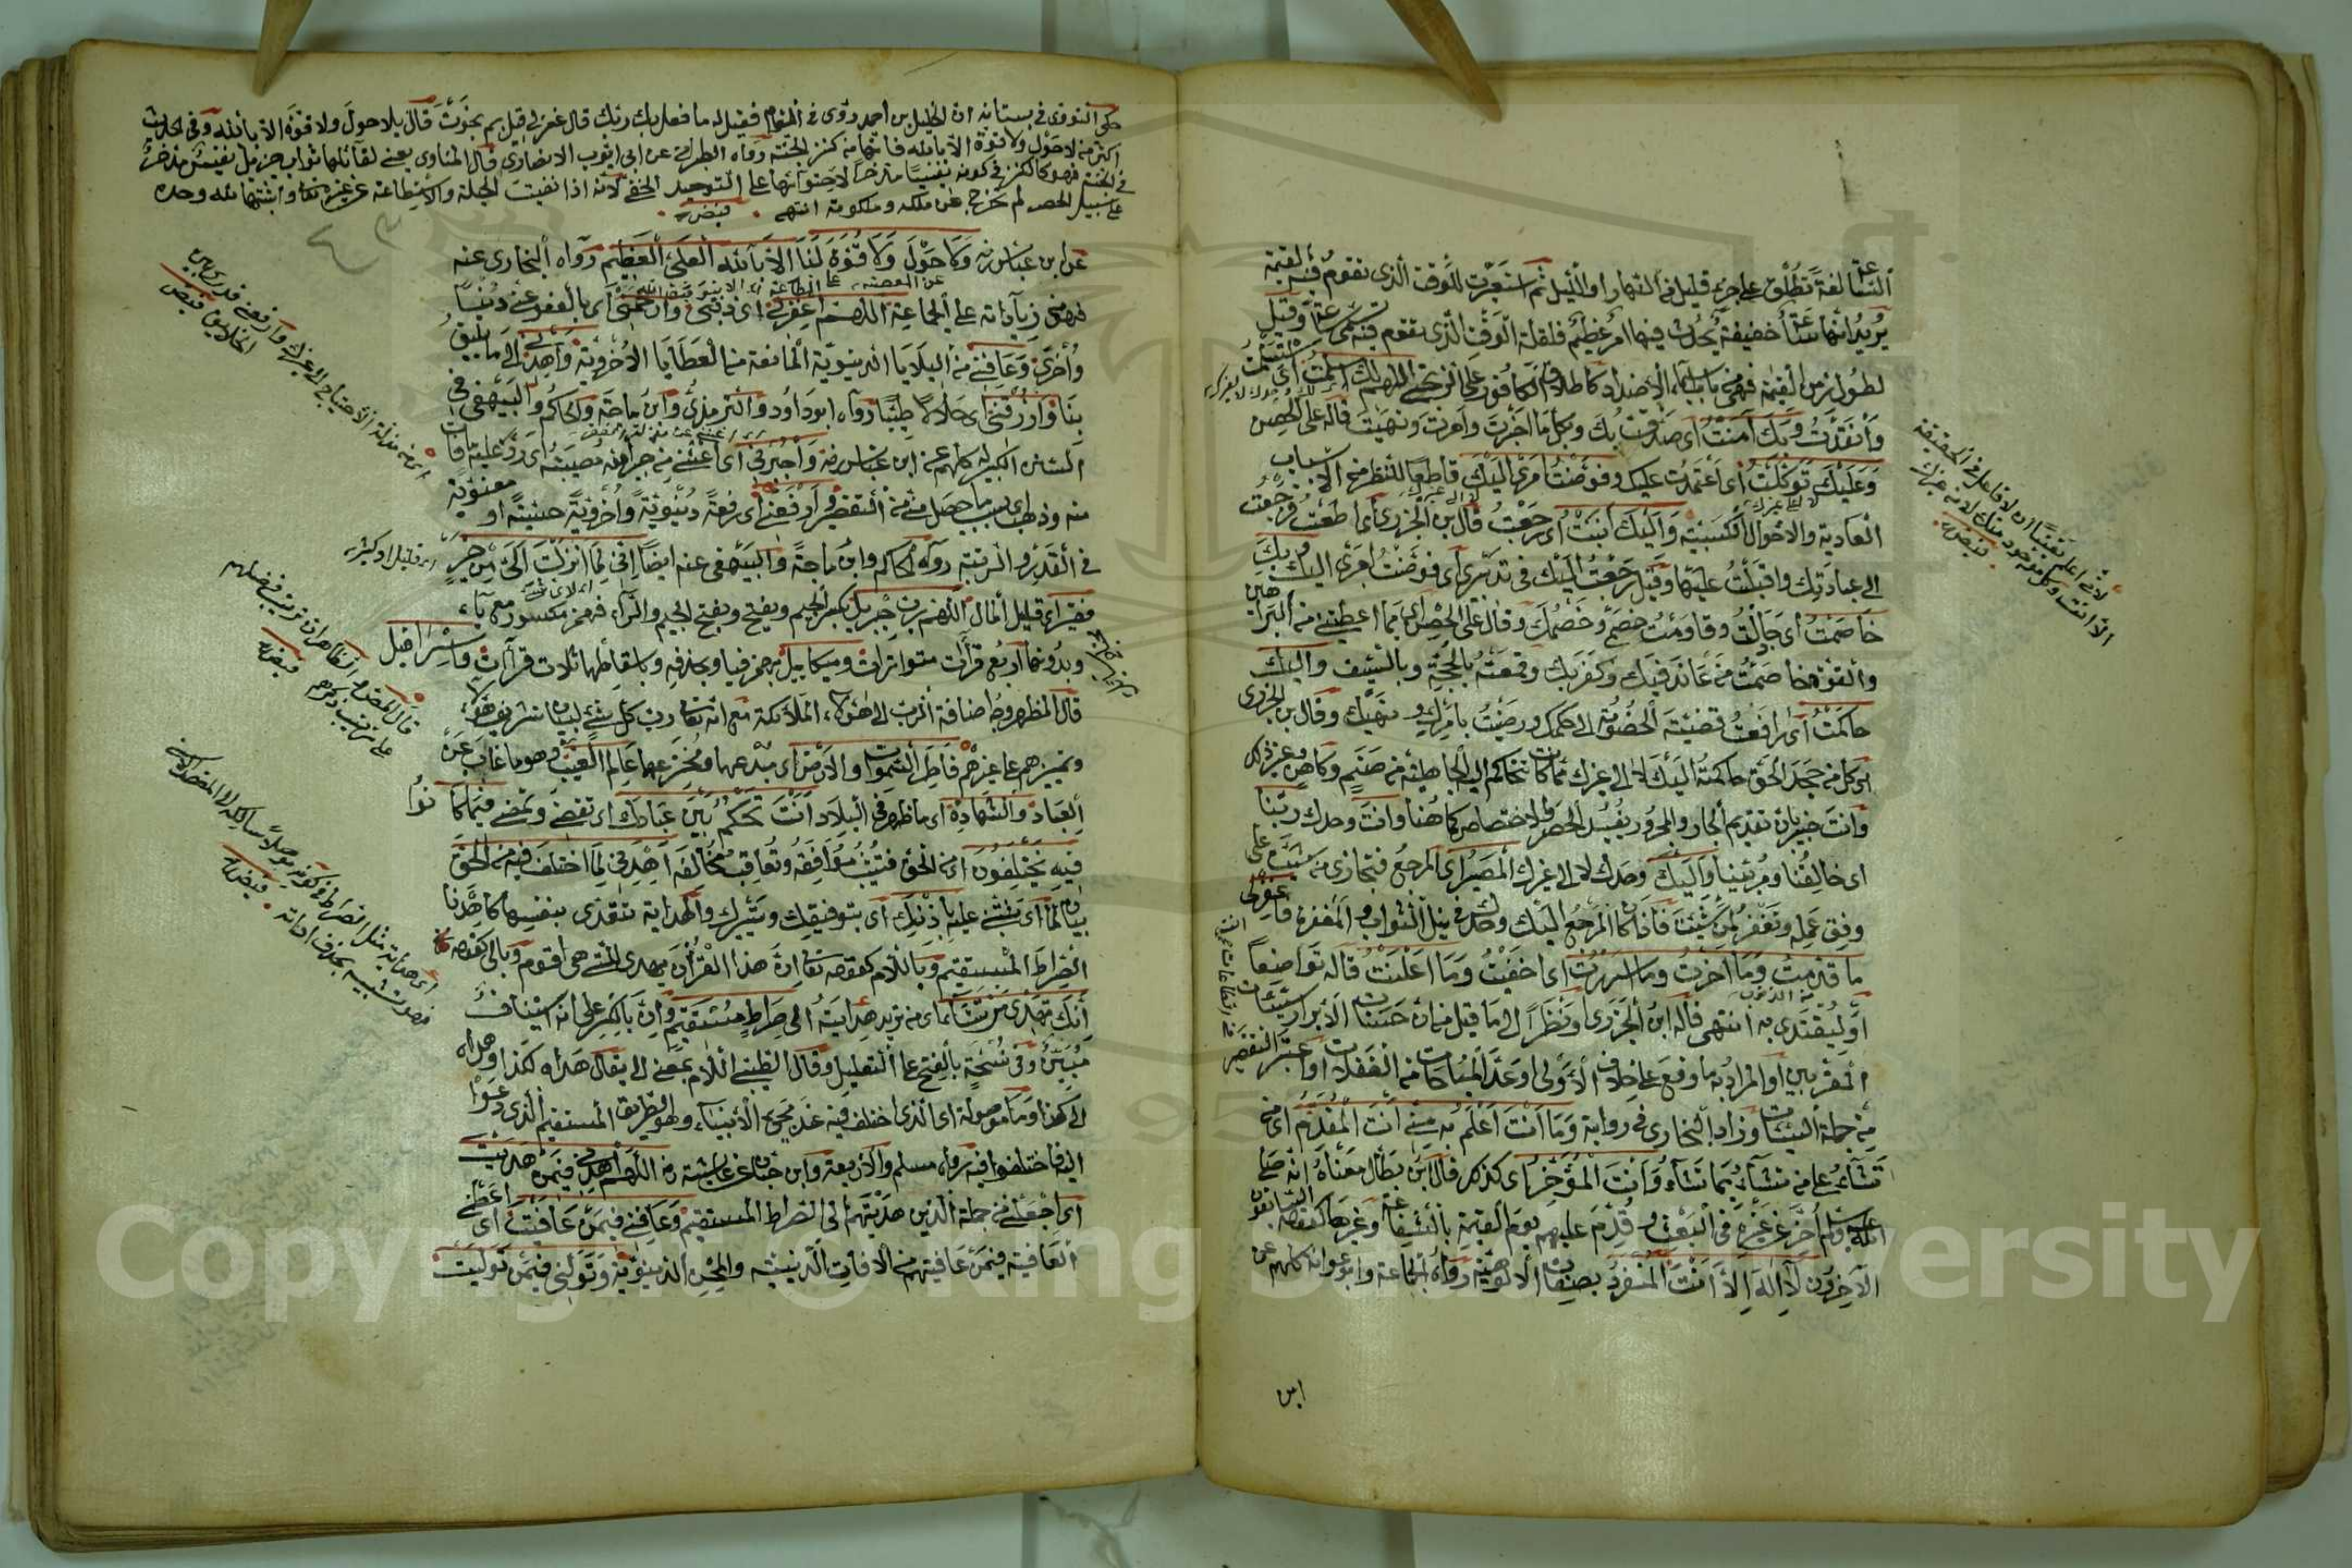 الساعة لغة تطلق على جزء قليل في النهار او الليل ثم استعيرت للوقت الذي تقوم فيه القيمة
يريد انها ساعة خفيفة يحدث فيها امر عظيم فلقلة الوقت الذي تقوم فيه سمى ساعة وقيل
لطول زمن القيمة فهى من باب اسماء الاضداد كاطلاق الكافور على الزنجى اللهم لك اسلمت اى استسلمت
وانقدت وبك امنت اى صدقت بك وبكل ما اخبرت وامرت ونهيت قاله على الحصين
وعليك توكلت اى اعتمدت عليك وفوضت امرى اليك قاطعا للنظر من الاسباب
العادية والاحوال الكسبية واليك انبت اى رجعت قال بن الجزرى اى اطعت ورجعت
الى عبادتك واقبلت عليها وقيل رجعت اليك في تدبيرى اى فوضت امرى اليك وبك
خاصمت اى جادلت وقاومت خصمى وخصمك وقال على الحصن اى بما اعطيتنى من البراهين
والقوة خاصمت من عاند فيك وكفر بك وقمعته بالحجة وبالسيف واليك
حاكمت اى رافعت قضية الخصومة الى حكمك ورضيت بامرك ونهيك وقال بن الجزرى
اى كل من جحد الحق حاكمته اليك لا الى غيرك مما كانت تتحاكم اليه الجاهلية من صنم وكاهن وغير ذلك
وانت خبير بان تقديم الجار والمجرور يفيد الحصر والاختصاص كما هنا وانت وحدك ربنا
اى خالقنا ومربينا واليك وحدك لا الى غيرك المصير اى المرجع فتجازى من شئت على
وفق عمله وتغفر لمن شئت فاذا كان المرجع اليك وحدك في نيل الثواب والمغفرة فاغفر لى
ما قدمت وما اخرت وما اسررت اى اخفيت وما اعلنت قاله تواضعا
او ليقتدى به انتهى قاله ابن الجزرى او نظرا الى ما قيل من ان حسنات الابرار سيئات
المقربين او المراد به ما وقع على خلاف الاولى او عد المباحات من الغفلات او اعتبر التقصير
من جملة السيئات وزاد البخارى في رواية وما انت اعلم به منى انت المقدم اى من
تشاء على من تشاء بما تشاء وانت المؤخر اى كذلك قال ابن بطال معناه انه صلى
الله عليه وسلم اخر عن غيره في البعث وقدم عليهم يوم القيمة بالشفاعة وغيرها كقوله نحن السابقون
الآخرون لا اله الا انت المنفرد بصفات الالوهية رواه الجماعة وابو عوانة كلهم عن
ابن
لانى اعلم يقينا ان لا فاعل في الحقيقة
الا انت وكل موجود منك لا من غيرك
فيض
حكى النووى في بستانه ان الخليل بن احمد رؤى في المنام فقيل له ما فعل بك ربك قال غفر لى قيل بم نجوت قال بلا حول ولا قوة الا بالله وفى الحديث
اكثر من لا حول ولا قوة الا بالله فانها من كنز الجنة رواه الطبرانى عن ابى ايوب الانصارى قال المناوى يعنى لقائلها ثواب جزيل نفيس مدخر
في الجنة فهو كالكنز في كونه نفيسا مدخرا لاحتوائها على التوحيد الخفى لانه اذا نفيت الحيلة والاستطاعة عن غيره تعا واثبتها لله وحده
على سبيل الحصر لم يخرج عن ملكه وملكوته انتهى فيض
عن ابن عباس رضه ولا حول ولا قوة لنا الا بالله العلى العظيم رواه البخارى عنه
فهى من زياداته على الجماعة اللهم اغفر لى اى ذنبى وارحمنى اى بالعفو عنى دنيا
واخرى وعافنى من البلايا الدنيوية المانعة من العطايا الاخروية واهدنى الى ما يليق
بنا وارزقنى اى حلالا طيبا رواه ابوداود والترمذى وابن ماجة والحاكم والبيهقى في
السنن الكبير له كلهم عن ابن عباس رضه واجبرنى اى اغننى من جبر الله مصيبته اى رد عليه ما فات
منه وذهب اى بسبب ما حصل منى من التقصير وارفعنى اى رفعة دنيوية واخروية حسية او معنوية
في القدر والمرتبة رواه الحاكم وابن ماجة والبيهقى عنه ايضا انى لما انزلت الى من خير
فقير اى قليل المال اللهم رب جبريل بكسر الجيم وبفتح وبفتح الجيم والراء فهمز مكسور مع ياء
وبدونها اربع قراآت متواترات وميكائيل بهمز فياء وبحذفه وباسقاطها ثلاث قراآت واسرافيل
قال المظهر وجه اضافة الرب الى هؤلاء الملائكة مع انه تعا رب كل شئ لبيان تشريف هؤلاء
وتميزهم على غيرهم فاطر السموات والارض اى مبدعهما ومخترعهما عالم الغيب وهو ما غاب عن
العباد والشهادة اى ما ظهر في البلاد انت تحكم بين عبادك اى تقضى وتمضى فيما كانوا
فيه يختلفون اى من الحق فتثيب موافقه وتعاقب مخالفه اهدنى لما اختلف فيه من الحق
بيان لما اى ثبتنى عليه باذنك اى بتوفيقك وتيسيرك والهداية تتعدى بنفسها كاهدنا
الصراط المستقيم وباللام كقوله تعا ان هذا القرآن يهدى للتى هى اقوم وبالى كقوله
انك تهدى من تشاء اى من تريد هدايته الى صراط مستقيم وان بالكسر على انه استيناف
مبين وفى نسخة بالفتح على التعليل وقال الطيبى اللام بمعنى الى يقال هداه لكذا وهداه
الى كذا وما موصولة اى الذى اختلف فيه عند مجئ الانبياء وهو الطريق المستقيم الذى دعوا
اليه فاختلفوا فيه رواه مسلم والاربعة وابن حبان عن عايشة رضه اللهم اهدنى فيمن هديت
اى اجعلنى من جملة الذين هديتهم الى الصراط المستقيم وعافنى فيمن عافيت اى اعطنى
العافية فيمن عافيتهم من الافات الدينية والمحن الدنيوية وتولنى فيمن توليت
اى قليل او كثير